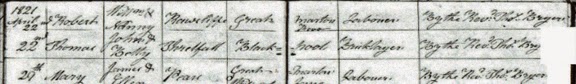 1821
April 22 Robert William & Rowcliffe Great Marton Labourer By the Revd Thos Bryer
22nd Thomas John & Betty Threlfall Black- pool Bricklayer By the Revd Thos Bry
29th Mary James & Ellen Great Marton Labourer By the Revd Thos Bryer